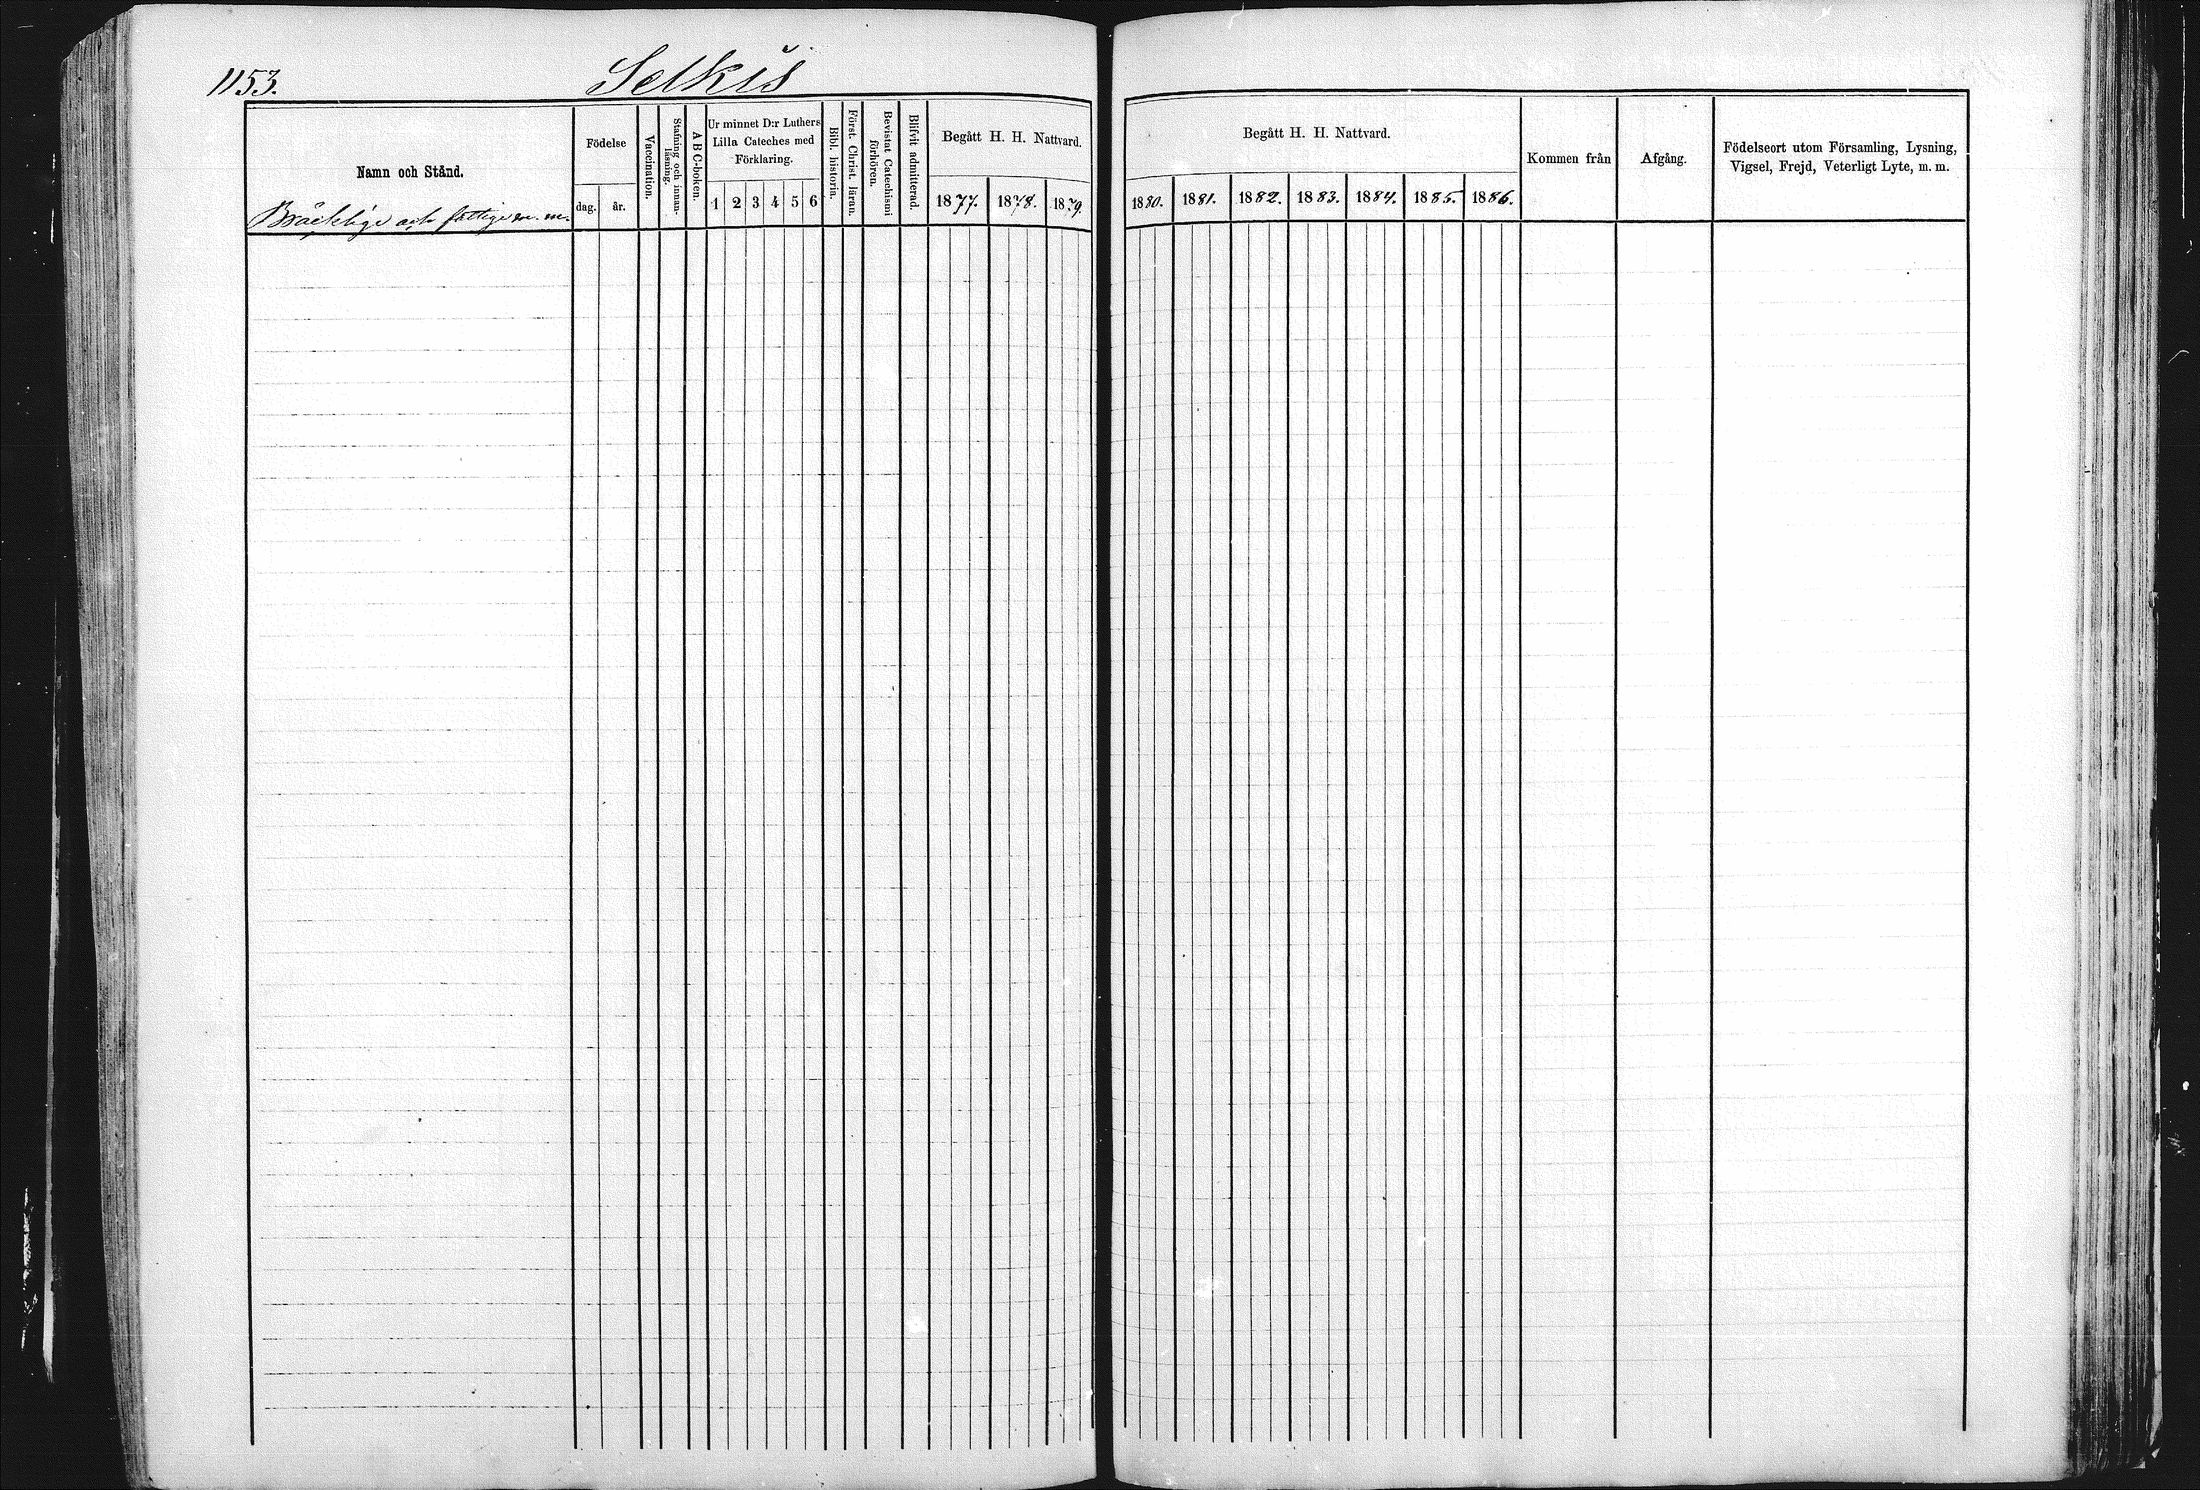 1153.
Selkis
Namn och Stånd.
Bräcklige och fattige m. m.
Födelse
dag.
år.
Vaccination.
Stafning och innan-
läsning.
A B C-boken.
Ur minnet D:r Luthers
Lilla Cateches med
Förklaring.
1 2 3 4 5 6
Bibl. historia.
Först. Christ. läran.
Bevistat Catechismi
förhören.
Blifvit admitterad.
Begått H. H. Nattvard.
1877. 1878. 1879.
Begått H. H. Nattvard.
1880. 1881. 1882. 1883. 1884. 1885. 1886.
Kommen från
Afgång.
Födelseort utom Församling, Lysning,
Vigsel, Frejd, Veterligt Lyte, m. m.